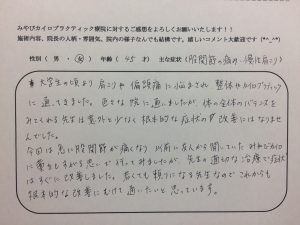 みやびカイロプラクティック療院に対するご感想をよろしくお願いいたします!!
施術内容、院長の人柄・雰囲気、院内の様子なんでも結構です。嬉しいコメント大歓迎です (*^_^*)
性別 (男・女) 年齢 (45才) 主な症状 (股関節の痛み・慢性肩こり)
大学生の頃より肩こりや偏頭痛に悩まされ 整体やカイロプラクティック
に通ってきました。色々な院に通いましたが、体の全体のバランスを
みてくれる先生は意外と少なく根本的な症状の改善にはなりませ
んでした。
今回は急に股関節が痛くなり 以前に友人から聞いていたみやびカイロ
に藁をもすがる思いで行ってみましたが、先生の適切な治療で症状
はすぐに改善しました。若くても頼りになる先生なのでこれからも
根本的な改善にむけて通いたいと思っています。